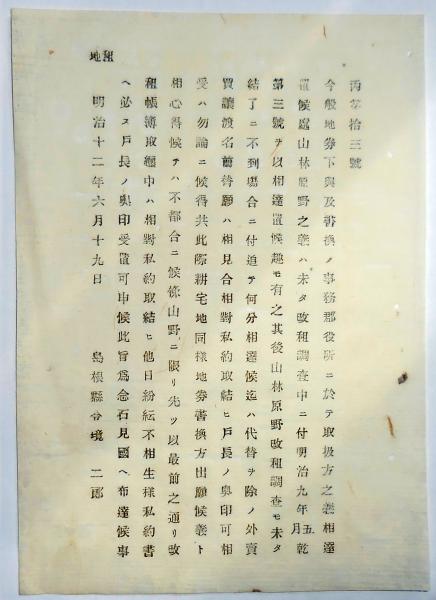 丙第拾三號
今般地券下與及書換ノ事務郡役所ニ於テ取扱方之義相達
置候處山林原野之義ハ未タ改租調査中ニ付明治九年五月乾
第三號ヲ以相達置候趣モ有之其後山林原野改租調査モ未タ
結了ニ不到塲合ニ付追テ何分相達候迄ハ代替ヲ除ノ外賣
買讓渡名前替願ハ相見合相對私約取結ヒ戸長ノ奥印可相
受ハ勿論ニ候得共此際耕宅地同樣地券書換方出願候義ト
相心得候テハ不都合ニ候條山野ニ限リ先ツ以最前之通リ改
租帳簿取纒中ハ相對私約取結ヒ他日紛紜不相生樣私約書
ヘ必ス戸長ノ奥印受置可申候此旨爲念石見國ヘ布達候事
明治十二年六月十九日 島根縣令境 二郎
地租